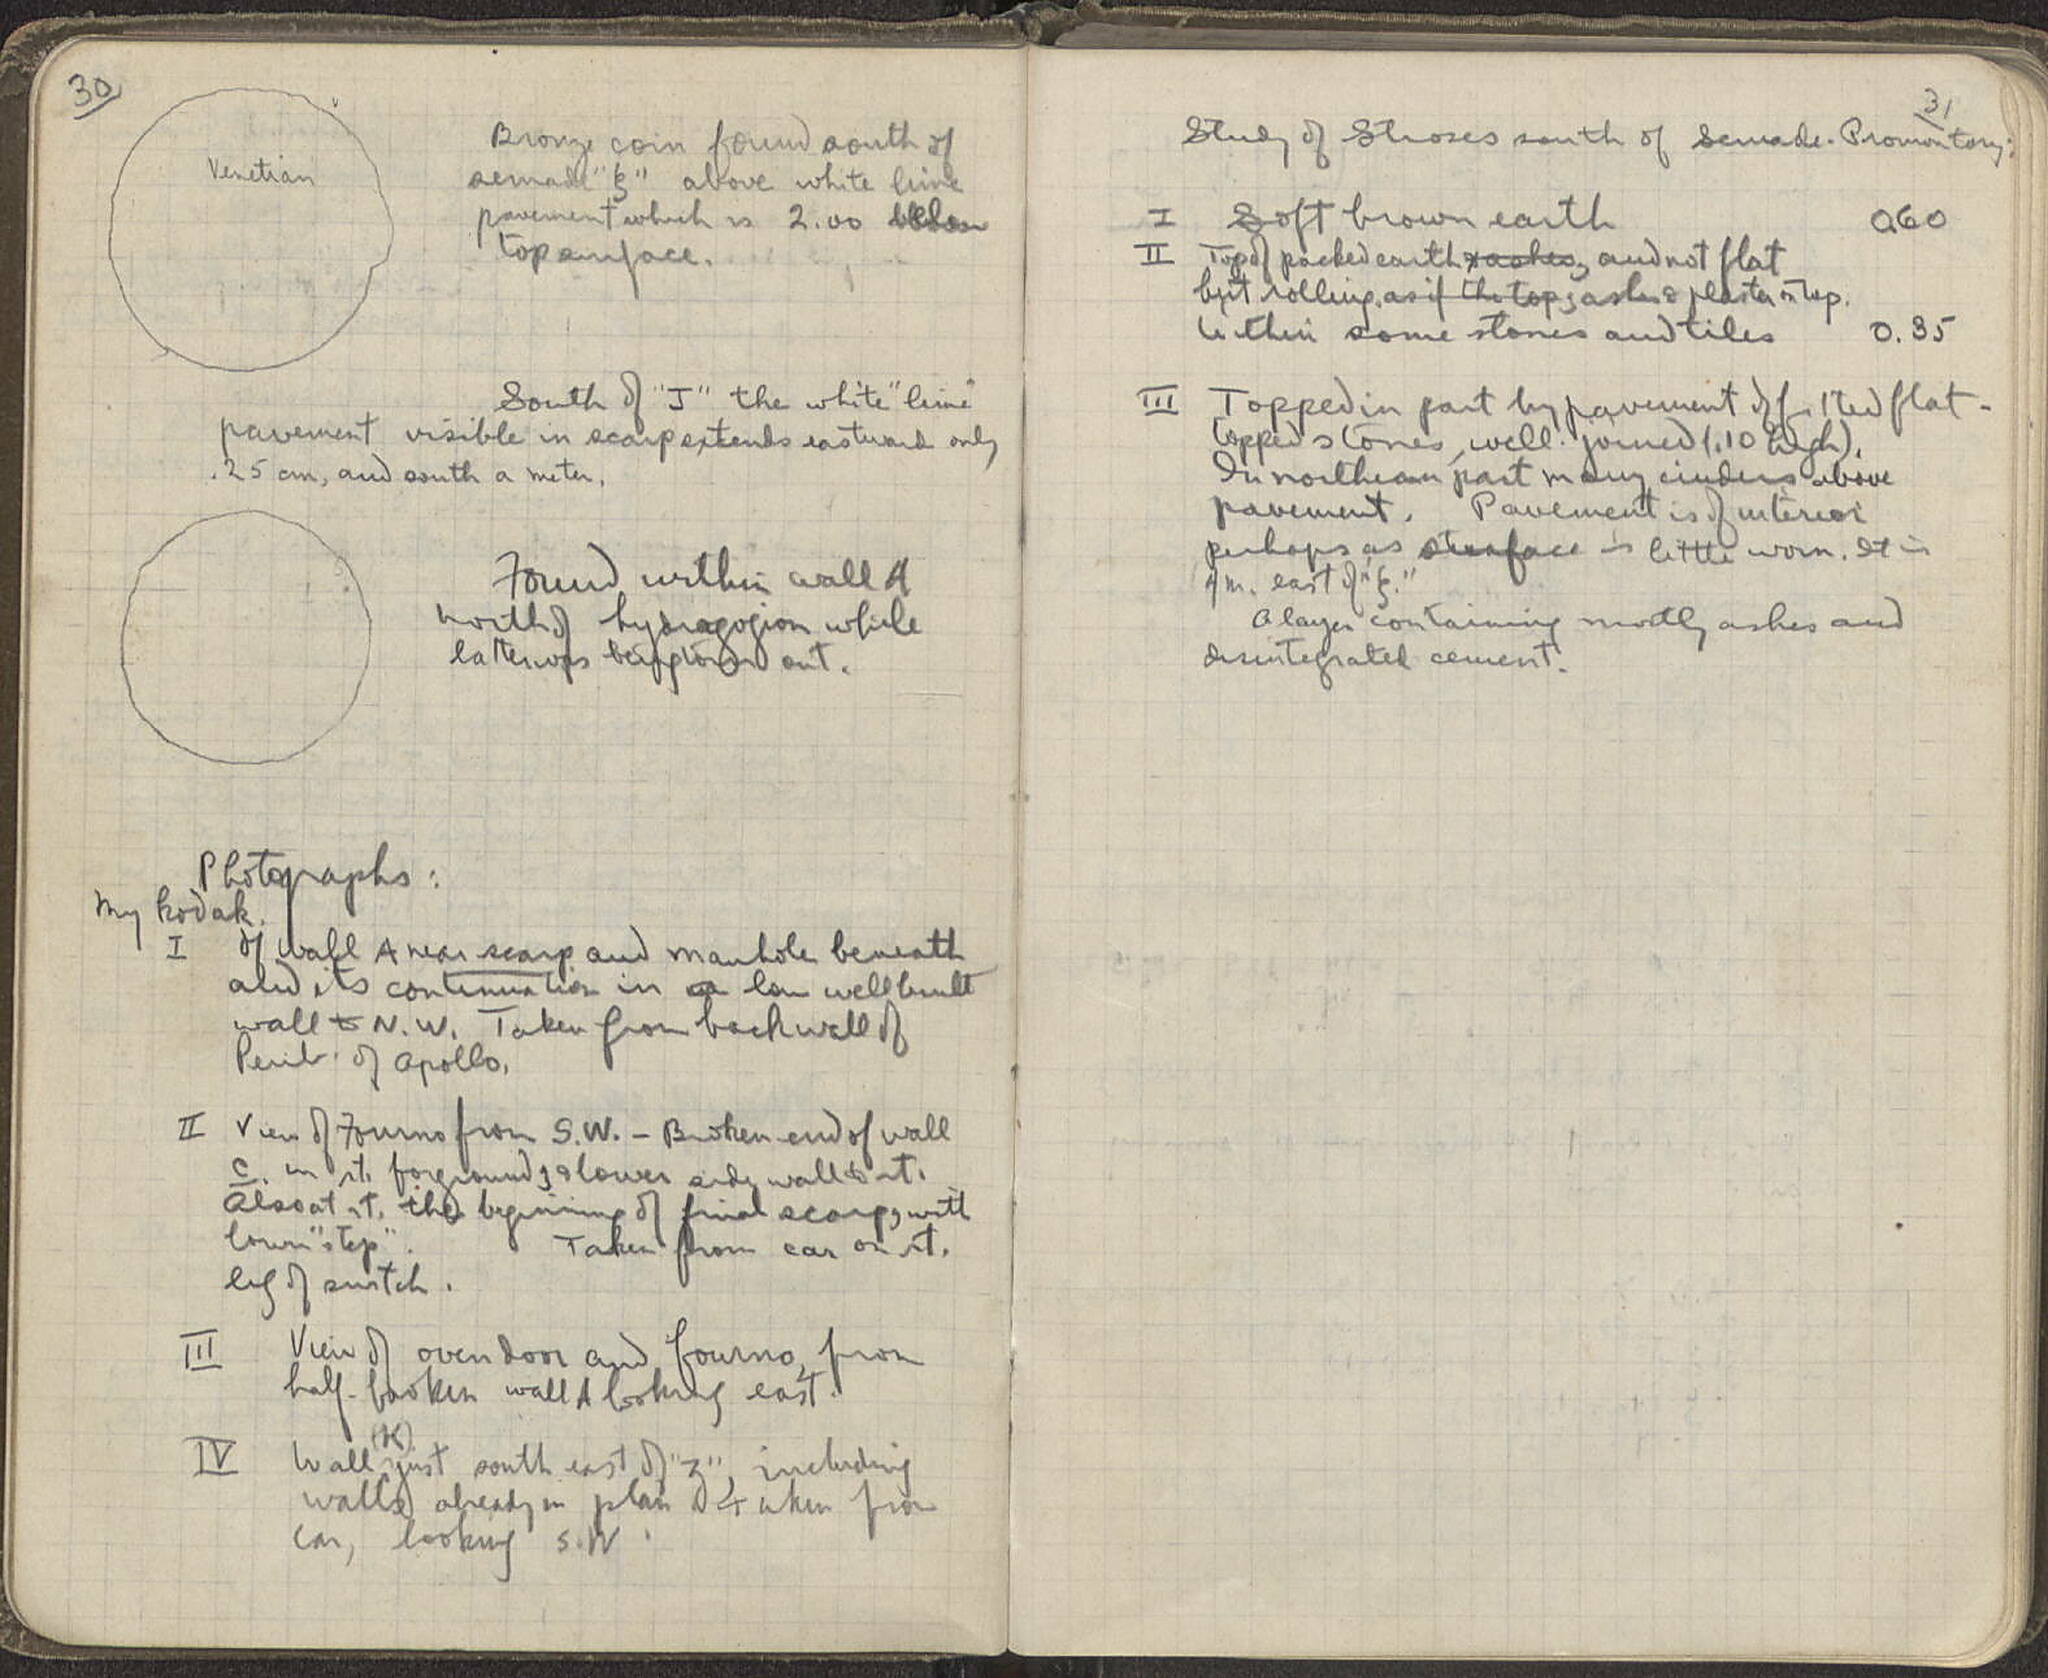 30
Venetian
Bronze coin found south of
semade "ξ" above white lime
pavement which is 2.00 below
top surface.
South of "J" the white "lime"
pavement visible in scarp extends eastward only
.25 cm, and south a meter.
Found within wall A
north of hydragogion while
latter was being torn out.
Photographs:
My kodak.
I of wall A near scarp and manhole beneath
and its continuation in a low well built
wall to N.W. Taken from back wall of
Perib. of Apollo.
II View of Fourno from S.W. – Broken end of wall
C. in rt. forground, & lower side wall to rt.
Also at rt. the beginning of final scarp, with
lower "step". Taken from car on rt.
leg of switch.
III View of oven door and fourno, from
half-broken wall A looking east.
IV Wall (K) just south east of "ξ", including
walls already in plan & taken from
car, looking S.W.
31
Study of Stroses south of Semade. Promontory:
I Soft brown earth 0.60
II Top of packed earth & ashes, and not flat
but rolling, as if the top; ashes & plaster on top.
Within some stones and tiles 0.35
III Topped in part by pavement of fitted flat-
topped stones, well joined (.10 high).
In northern part many cinders above
pavement. Pavement is of interior
perhaps as surface is little worn. It is
4 m. east of "ξ."
A layer containing mostly ashes and
disintegrated cement.